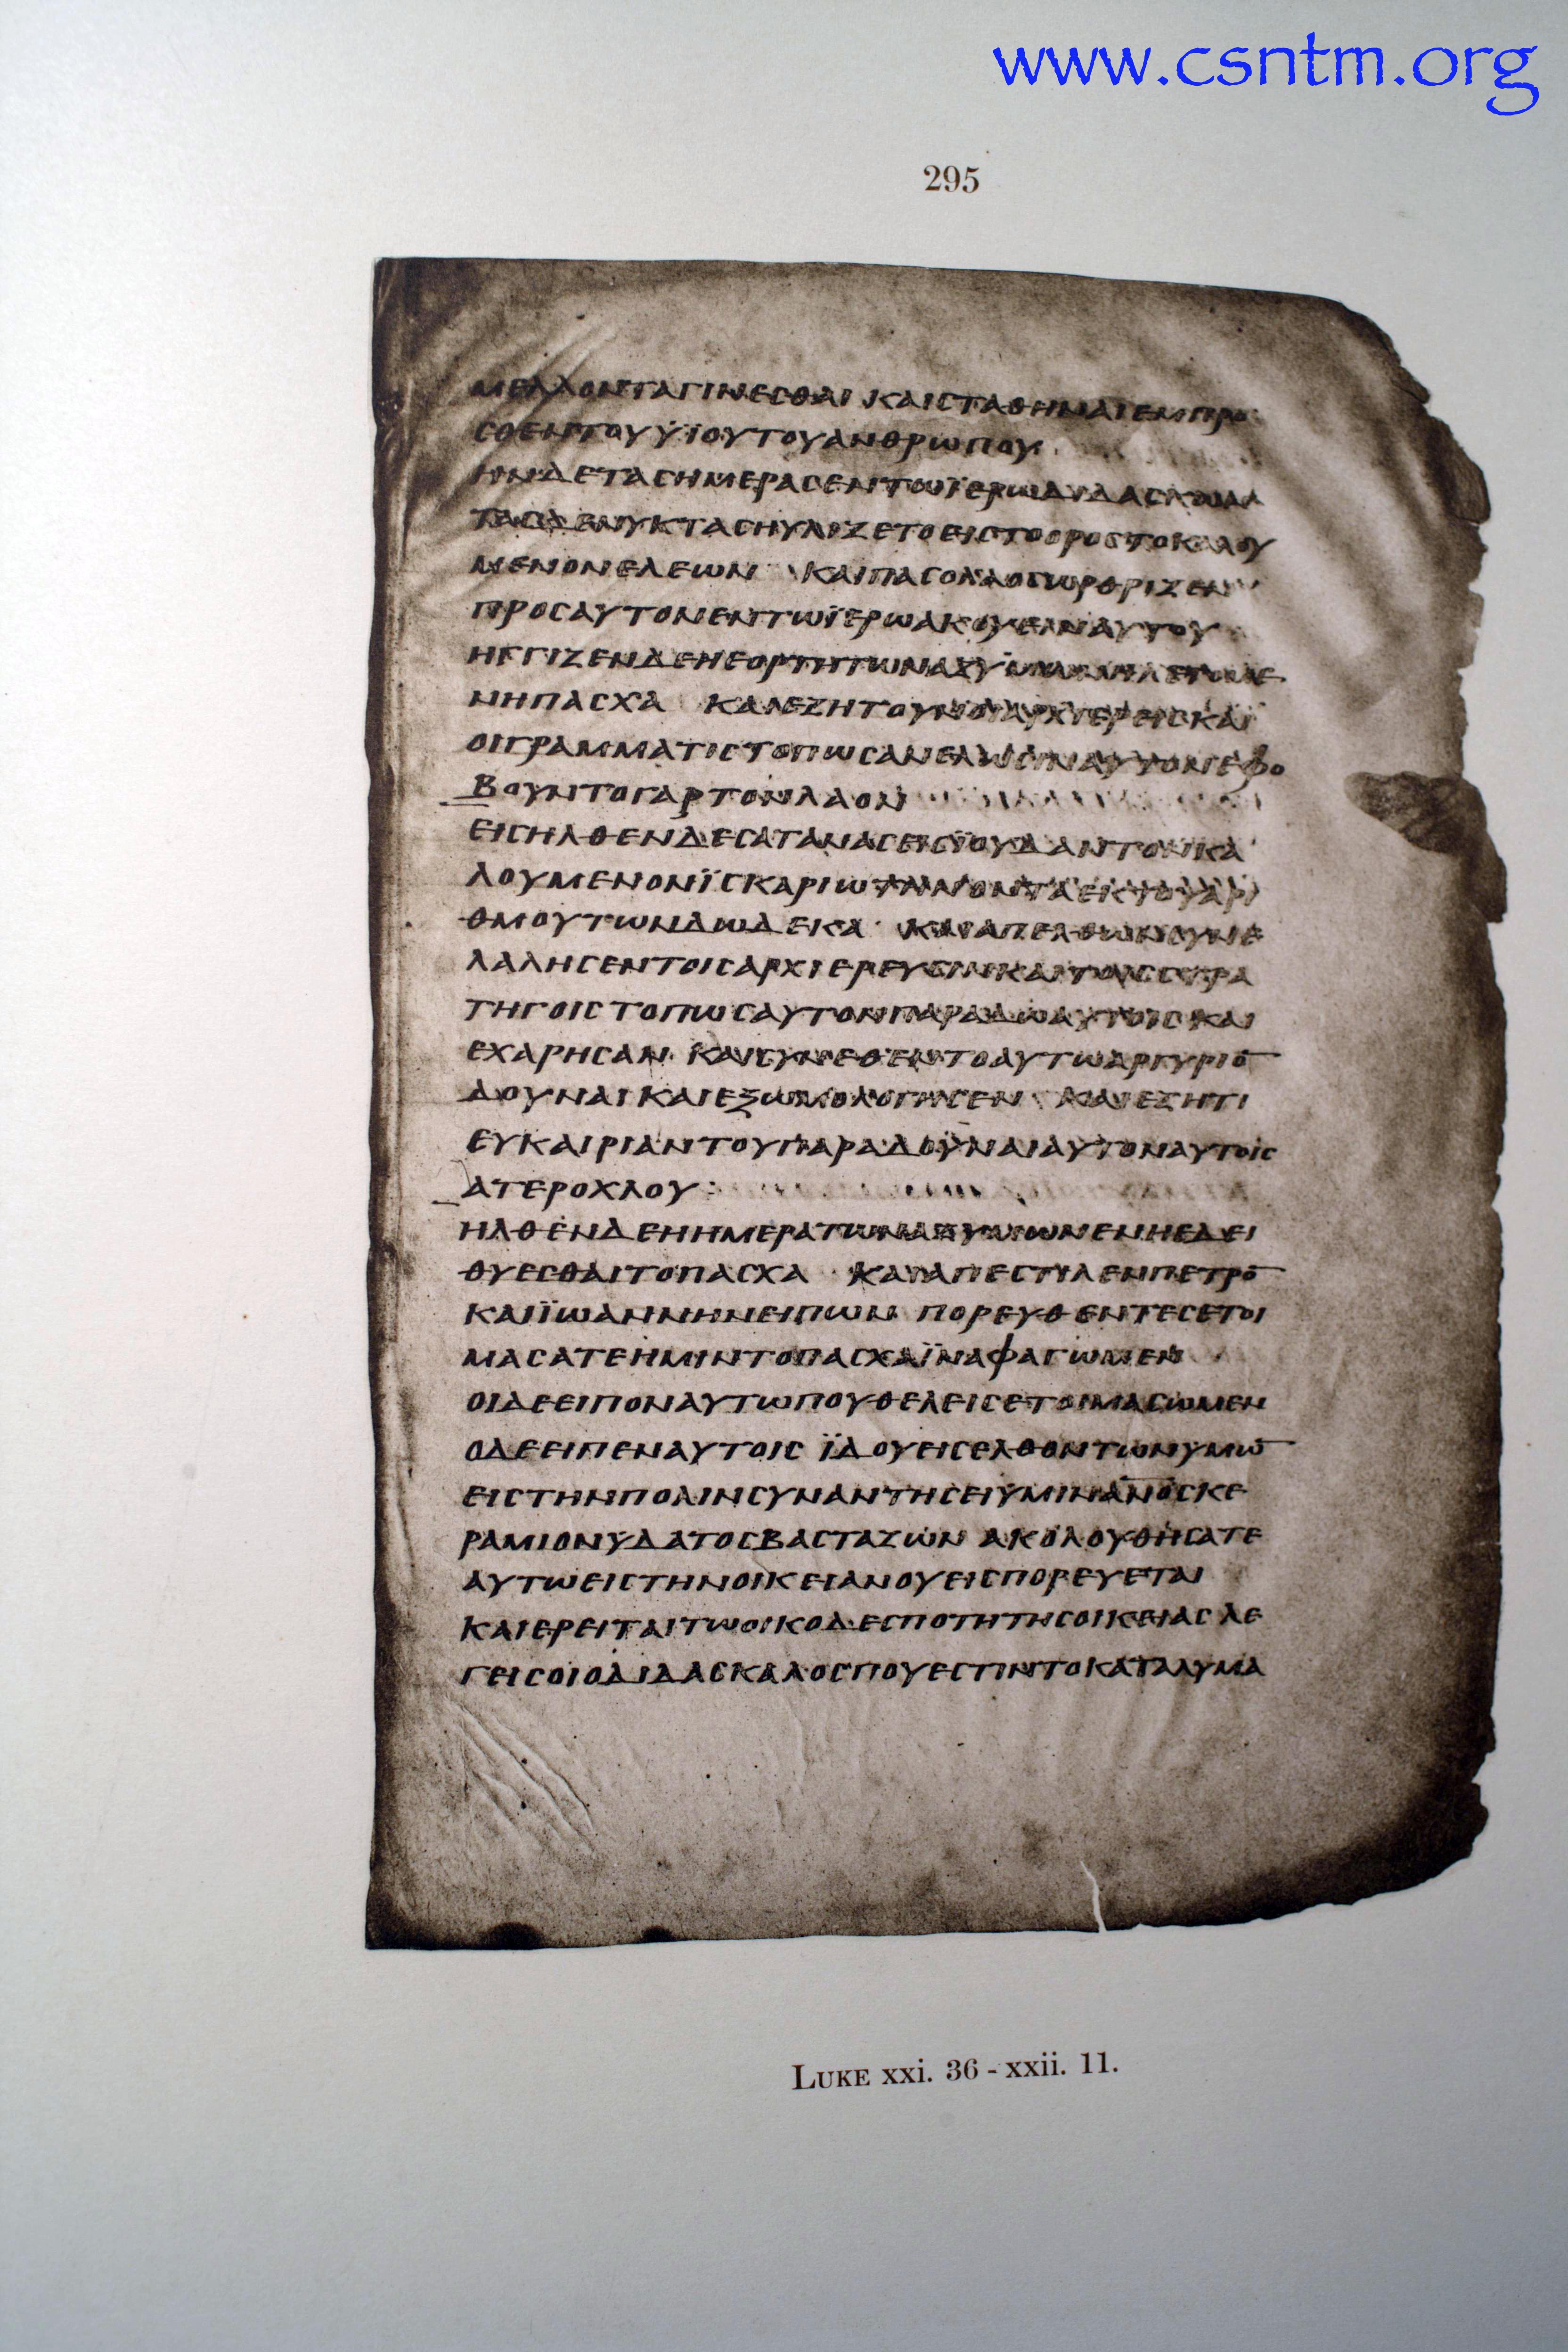 www.csntm.org
295
ΜΕΛΛΟΝΤΑΓΙΝΕСΘΑΙ ΚΑΙСΤΑΘΗΝΑΙΕΜΠΡΟ
СΘΕΝΤΟΥΫΙΟΥΤΟΥΑΝΘΡΩΠΟΥ
ΗΝΔΕΤΑСΗΜΕΡΑСΕΝΤΩΪΕΡΩΔΙΔΑСΚΩΝ
ΤΑСΔΕΝΥΚΤΑСΗΥΛΙΖΕΤΟΕΙСΤΟΟΡΟСΤΟΚΑΛΟΥ
ΜΕΝΟΝΕΛΕΩΝ ΚΑΙΠΑСΟΛΑΟСΩΡΘΡΙΖΕΝ
ΠΡΟСΑΥΤΟΝΕΝΤΩΪΕΡΩΑΚΟΥΕΙΝΑΥΤΟΥ
ΗΓΓΙΖΕΝΔΕΗΕΟΡΤΗΤΩΝΑΖΥΜΩΝΗΛΕΓΟΜΕ
ΝΗΠΑСΧΑ ΚΑΙΕΖΗΤΟΥΝΟΙΑΡΧΙΕΡΕΙСΚΑΙ
ΟΙΓΡΑΜΜΑΤΙСΤΟΠΩСΑΝΕΛΩСΙΝΑΥΤΟΝΕΦΟ
ΒΟΥΝΤΟΓΑΡΤΟΝΛΑΟΝ
ΕΙСΗΛΘΕΝΔΕСΑΤΑΝΑСΕΙСΪΟΥΔΑΝΤΟΝΚΑ
ΛΟΥΜΕΝΟΝΪСΚΑΡΙΩΤΗΝΟΝΤΑΕΚΤΟΥΑΡΙ
ΘΜΟΥΤΩΝΔΩΔΕΚΑ ΚΑΙΑΠΕΛΘΩΝСΥΝΕ
ΛΑΛΗСΕΝΤΟΙСΑΡΧΙΕΡΕΥСΙΝΚΑΙΤΟΙССΤΡΑ
ΤΗΓΟΙСΤΟΠΩСΑΥΤΟΝΠΑΡΑΔΩΑΥΤΟΙСΚΑΙ
ΕΧΑΡΗСΑΝ ΚΑΙСΥΝΕΘΕΝΤΟΑΥΤΩΑΡΓΥΡΙΟ̅
ΔΟΥΝΑΙΚΑΙΕΞΩΜΟΛΟΓΗСΕΝ ΚΑΙΕΖΗΤΙ
ΕΥΚΑΙΡΙΑΝΤΟΥΠΑΡΑΔΟΥΝΑΙΑΥΤΟΝΑΥΤΟΙС
ΑΤΕΡΟΧΛΟΥ:
ΗΛΘΕΝΔΕΗΗΜΕΡΑΤΩΝΑΖΥΜΩΝΕΝΗΕΔΕΙ
ΘΥΕСΘΑΙΤΟΠΑСΧΑ ΚΑΙΑΠΕСΤΙΛΕΝΠΕΤΡΟ̅
ΚΑΙΪΩΑΝΝΗΝΕΙΠΩΝ ΠΟΡΕΥΘΕΝΤΕСΕΤΟΙ
ΜΑСΑΤΕΗΜΙΝΤΟΠΑСΧΑΪΝΑΦΑΓΩΜΕΝ
ΟΙΔΕΕΙΠΟΝΑΥΤΩΠΟΥΘΕΛΕΙСΕΤΟΙΜΑСΩΜΕΝ
ΟΔΕΕΙΠΕΝΑΥΤΟΙС ΪΔΟΥΕΙСΕΛΘΟΝΤΩΝΥΜΩ̅
ΕΙСΤΗΝΠΟΛΙΝСΥΝΑΝΤΗСΕΙΫΜΙΝΑ̅Ν̅Ο̅СΚΕ
ΡΑΜΙΟΝΫΔΑΤΟСΒΑСΤΑΖΩΝ ΑΚΟΛΟΥΘΗСΑΤΕ
ΑΥΤΩΕΙСΤΗΝΟΙΚΕΙΑΝΟΥΕΙСΠΟΡΕΥΕΤΑΙ
ΚΑΙΕΡΕΙΤΑΙΤΩΟΙΚΟΔΕСΠΟΤΗΤΗСΟΙΚΕΙΑСΛΕ
ΓΕΙСΟΙΟΔΙΔΑСΚΑΛΟСΠΟΥΕСΤΙΝΤΟΚΑΤΑΛΥΜΑ
LUKE xxi. 36 - xxii. 11.